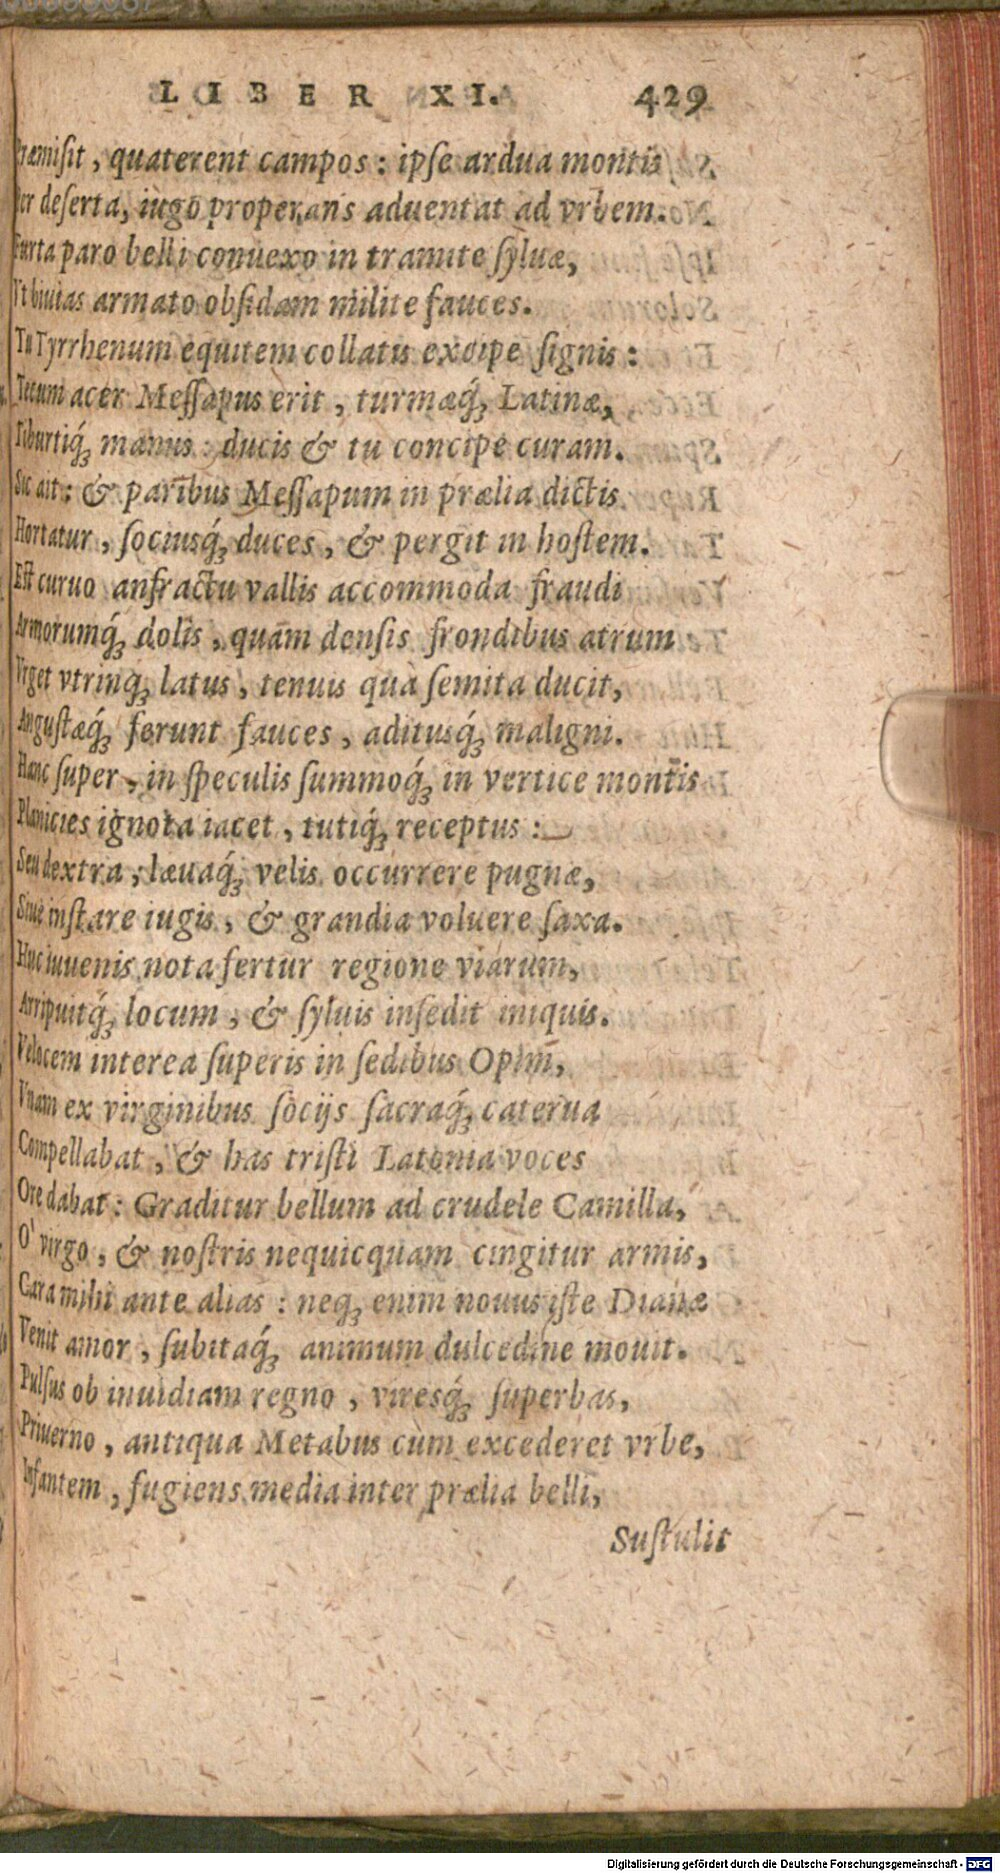 LIBER XI. 429
Præmisit, quaterent campos: ipse ardua montis
Per deserta, iugo properans aduentat ad vrbem.
Furta paro belli conuexo in tramite syluæ,
Vt biuias armato obsidam milite fauces.
Tu Tyrrhenum equitem collatis excipe signis:
Tecum acer Messapus erit, turmæq́; Latinæ,
Tiburtiq́; manus: ducis & tu concipe curam.
Sic ait: & paribus Messapum in prælia dictis
Hortatur, sociosq́; duces, & pergit in hostem.
Est curuo anfractu vallis accommoda fraudi
Armorumq́; dolis, quam densis frondibus atrum
Vrget vtrinq; latus, tenuis quà semita ducit,
Angustæq́; ferunt fauces, aditusq́; maligni.
Hanc super, in speculis summoq́; in vertice montis
Planicies ignota iacet, tutiq́; receptus:
Seu dextra, læuaq́; velis occurrere pugnæ,
Siue instare iugis, & grandia voluere saxa.
Huc iuuenis nota fertur regione viarum,
Arripuitq́; locum, & syluis insedit iniquis.
Velocem interea superis in sedibus Opim,
Vnam ex virginibus socijs sacraq́; caterua
Compellabat, & has tristi Latonia voces
Ore dabat: Graditur bellum ad crudele Camilla,
O' virgo, & nostris nequicquam cingitur armis,
Cara mihi ante alias: neq; enim nouus iste Dianæ
Venit amor, subitaq́; animum dulcedine mouit.
Pulsus ob inuidiam regno, viresq́; superbas,
Priuerno, antiqua Metabus cùm excederet vrbe,
Infantem, fugiens media inter prælia belli,
Sustulit
Digitalisierung gefördert durch die Deutsche Forschungsgemeinschaft - DFG